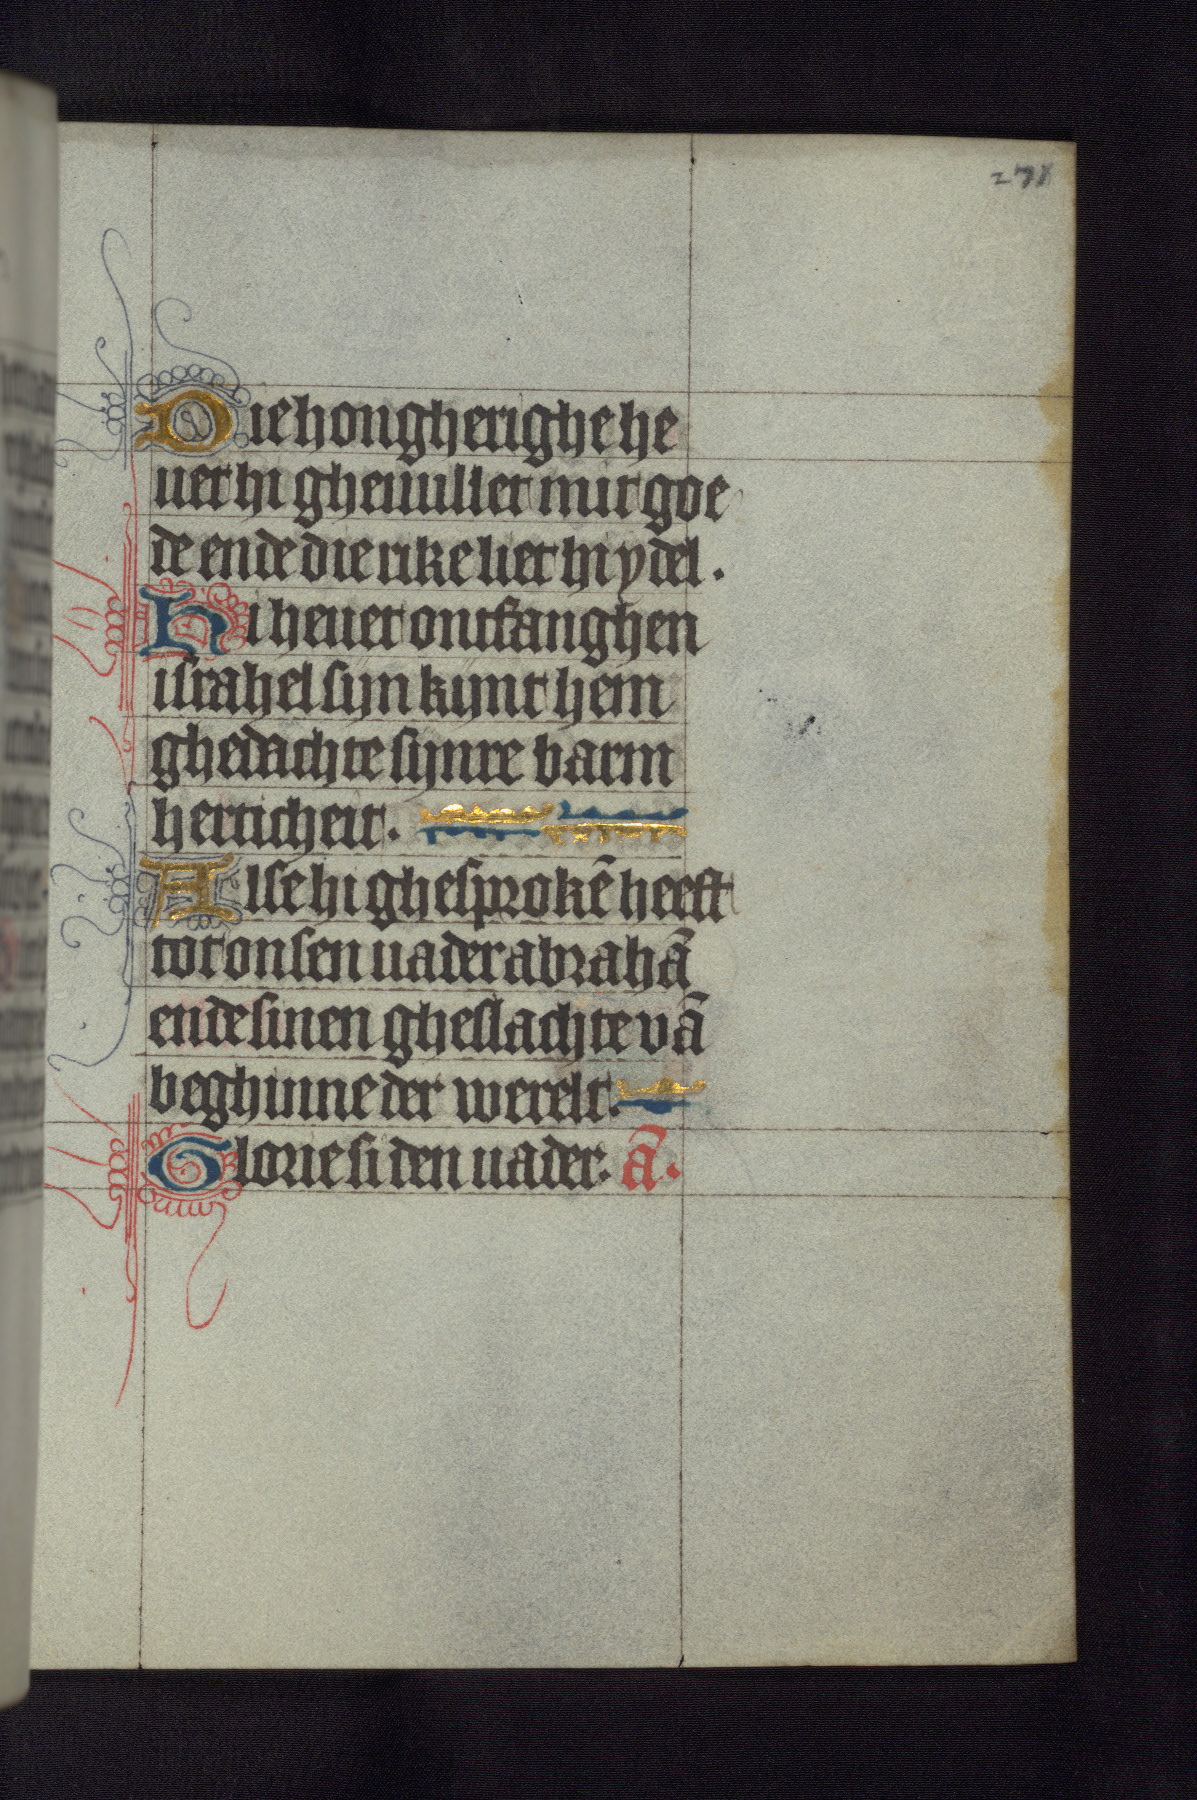 Die hongherighe he
uet hi gheuullet mit goe
de ende die rike liet hi ydel.
Hi heuet ontfanghen
israhel sijn kijnt hem
ghedachte sijnre barm
herticheit.
Alse hi ghesprokē heeft
tot onsen uader abrahā
ende sinen gheslachte vā
beghinne der werelt.
Glorie si den uader. ā.